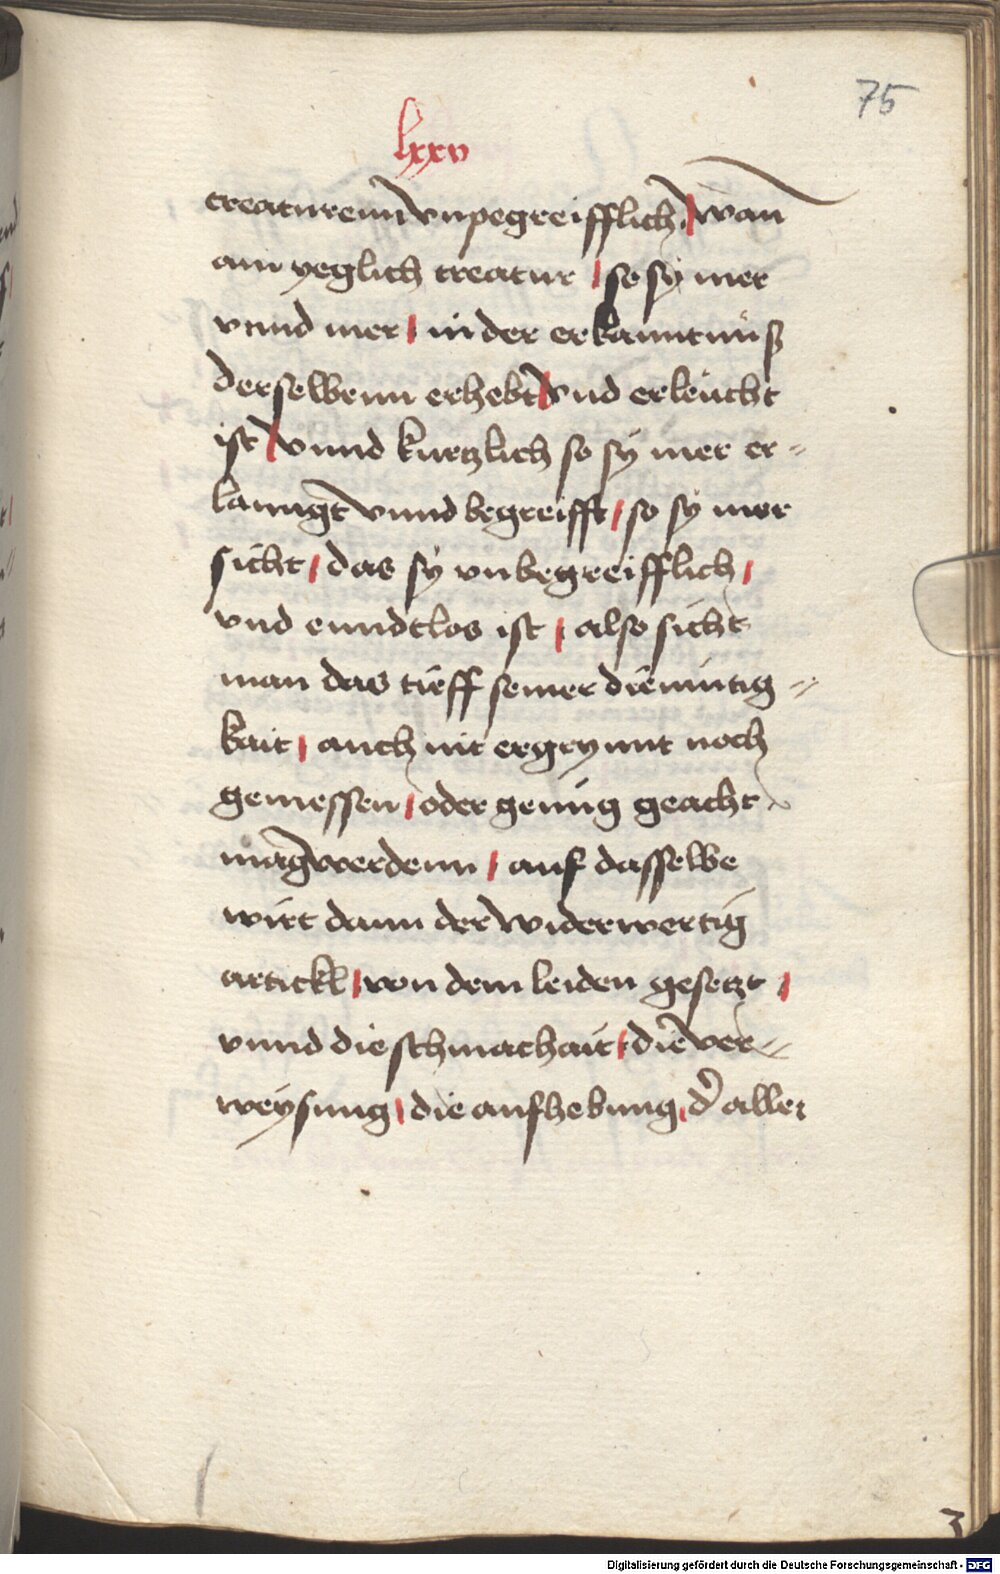 75
lxxv
creaturenn vnpegreifflich / wan
ain yeglich creatur / so sy mer
vnnd mer / in der erkanntnuß
derselbenn erhebt / vnd erleücht
ist / vnnd kurtzlich so sy mer er=
lanngt vnnd begreifft / so sy mer
sicht / das sy vnbegreifflich /
vnd enndtlos ist / also sicht
man das tieff seiner diemütig=
kait / auch nit ergrynnt noch
gemessen / oder genüg geacht
mag werdenn / auf dasselbe
wirt dann der widerwertig
artickl / von dem leiden gesetzt /
vnnd die schmachait / die ver=
weysung / die aufhebung / d' aller
Digitalisierung gefördert durch die Deutsche Forschungsgemeinschaft - DFG